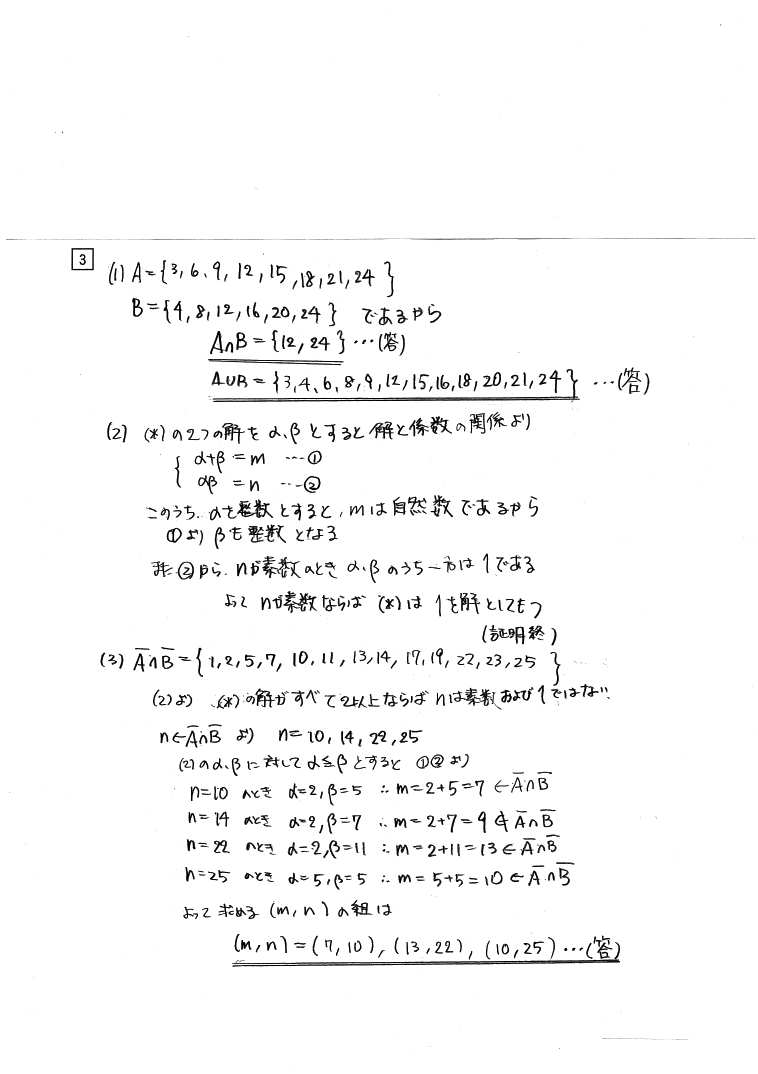 3
(1) A={3,6、9,12,15,18,21,24}
B={4,8,12,16,20,24} であるから
A∩B={12,24}…(答)
A∪B={3,4、6,8,9,12,15,16,18,20,21,24} …(答)
(2) (*)の2つの解をα、βとすると解と係数の関係より
α+β=m …①
αβ=n …②
このうち、αを整数とすると、mは自然数であるから
①よりβも整数となる
また②から、nが素数のときα、βのうち一方は1である
よってnが素数ならば(*)は1を解としてもつ
(証明終)
(3) A̅∩B̅={1,2,5,7,10,11,13,14,17,19,22,23,25}
(2)より (*)の解がすべて2以上ならばnは素数および1ではない.
n∈A̅∩B̅ より n=10,14,22,25
(2)のα、βに対してα≦βとすると ①②より
n=10 のとき α=2,β=5 ∴m=2+5=7 ∈A̅∩B̅
n=14 のとき α=2,β=7 ∴m=2+7=9 ∉A̅∩B̅
n=22 のとき α=2,β=11 ∴m=2+11=13∈A̅∩B̅
n=25 のとき α=5,β=5 ∴m=5+5=10∈A̅∩B̅
よって求める(m,n)の組は
(m,n)=(7,10),(13,22),(10,25)…(答)